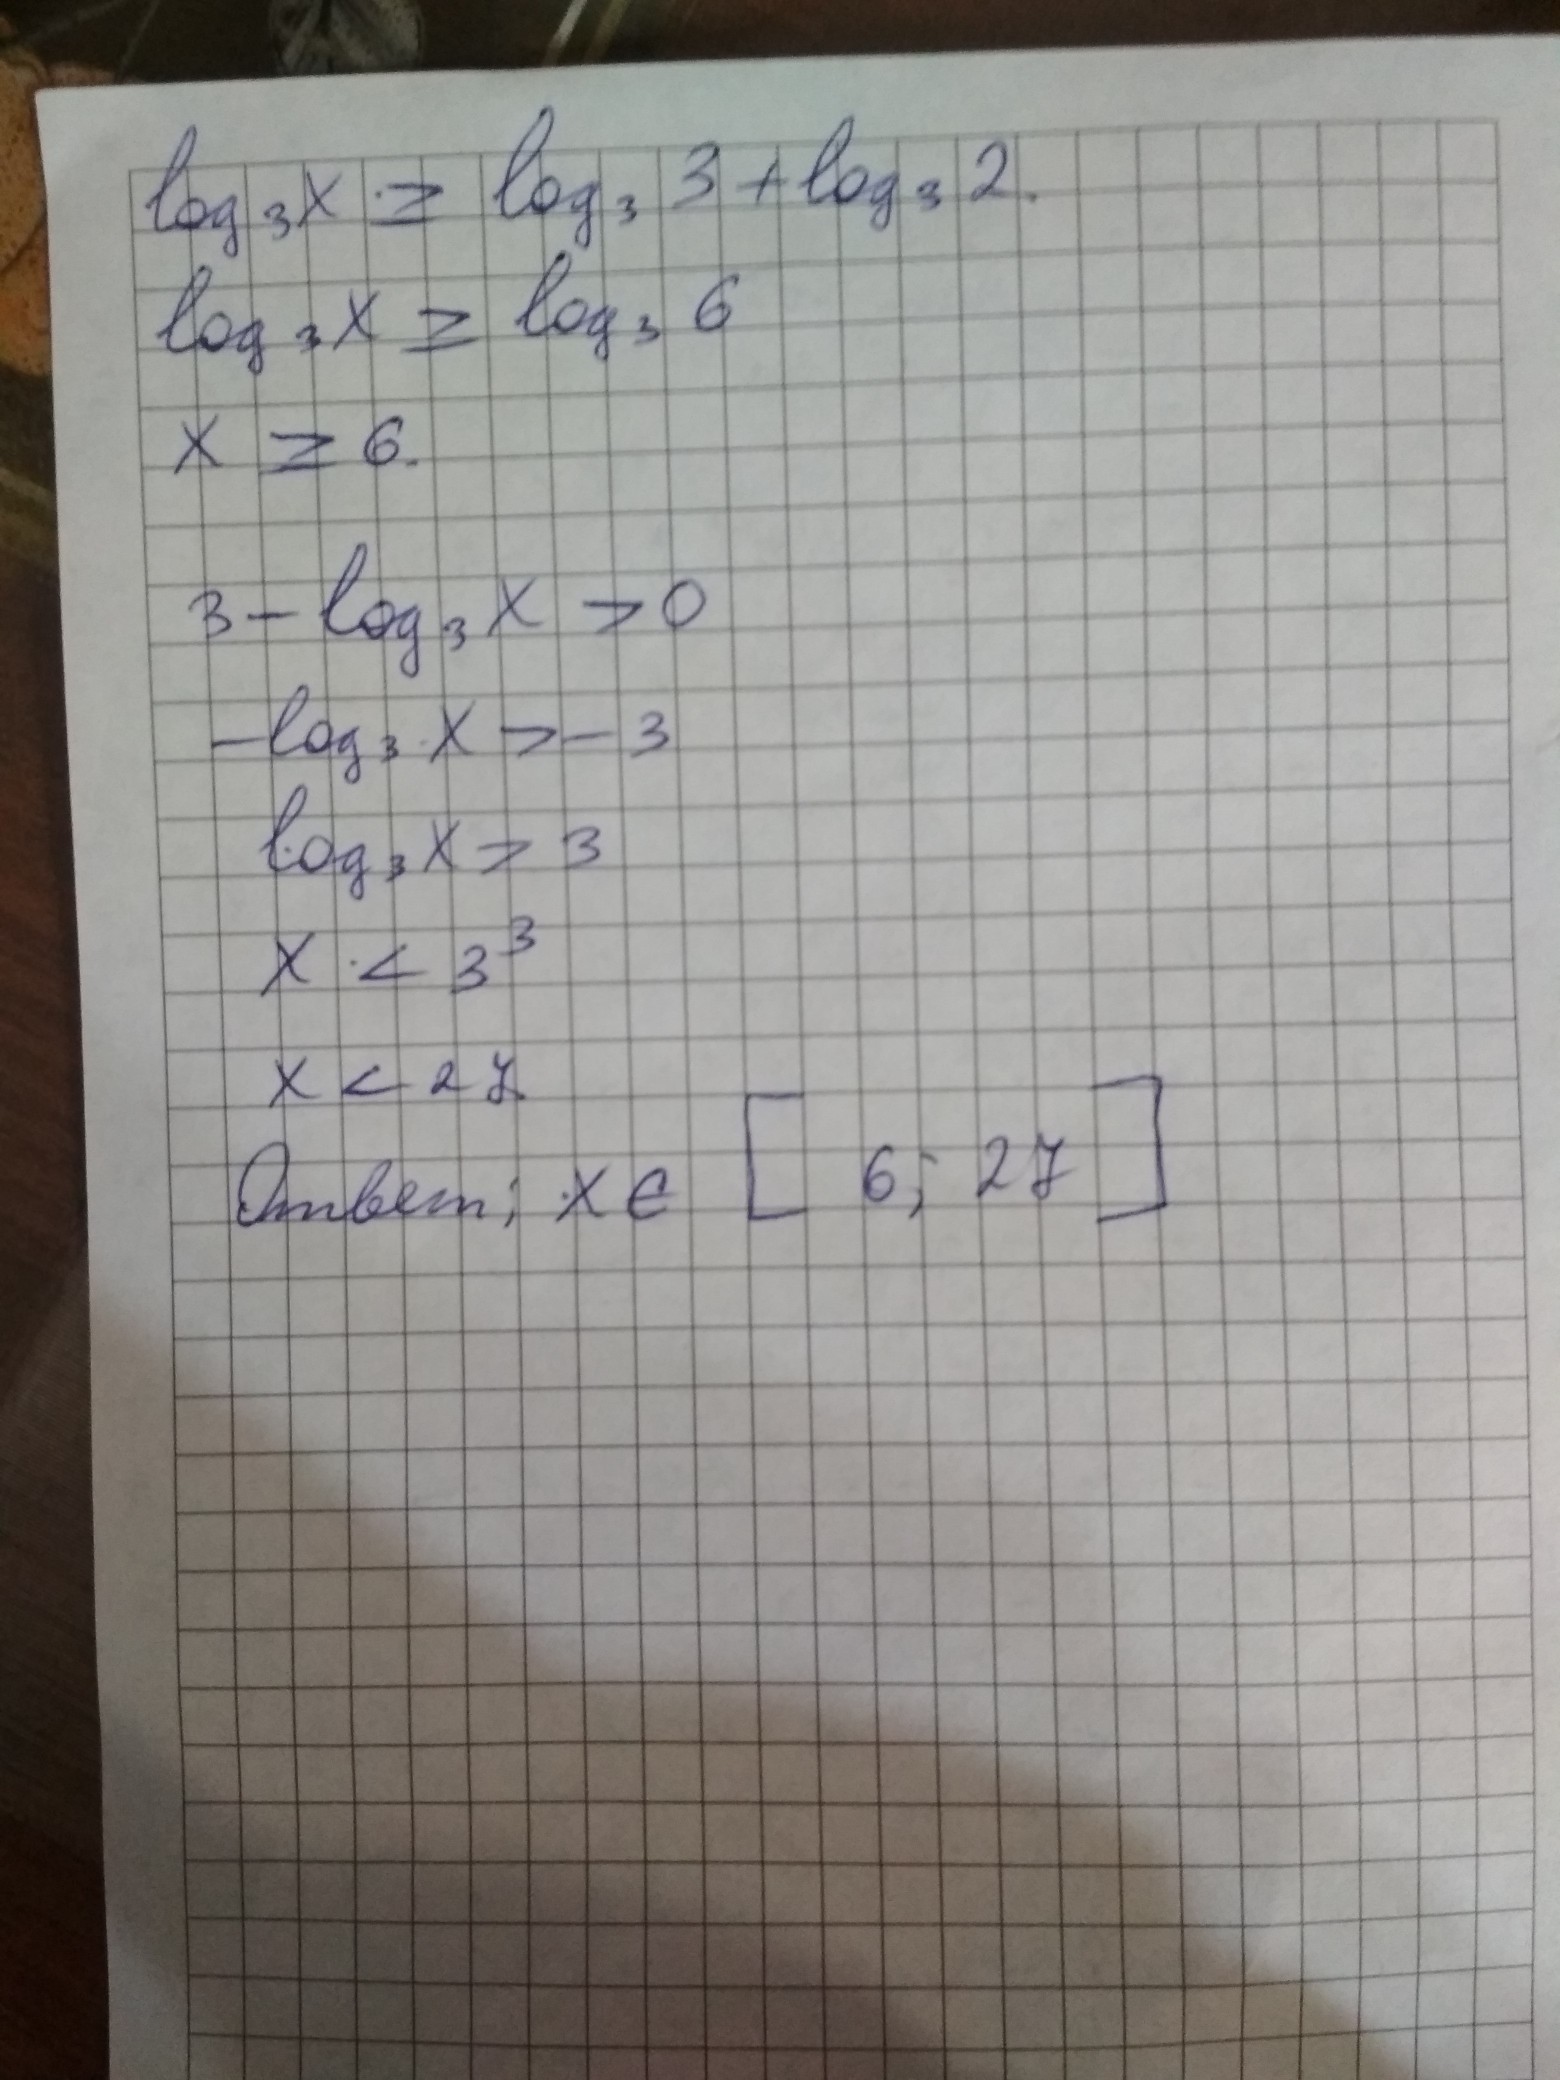 log₃x ≥ log₃ 3 + log₃ 2.
log₃x ≥ log₃ 6
x ≥ 6.
3 - log₃ x > 0
-log₃ x > - 3
log₃ x > 3
x < 3³
x < 27
Ответ; x ∈ [6; 27]